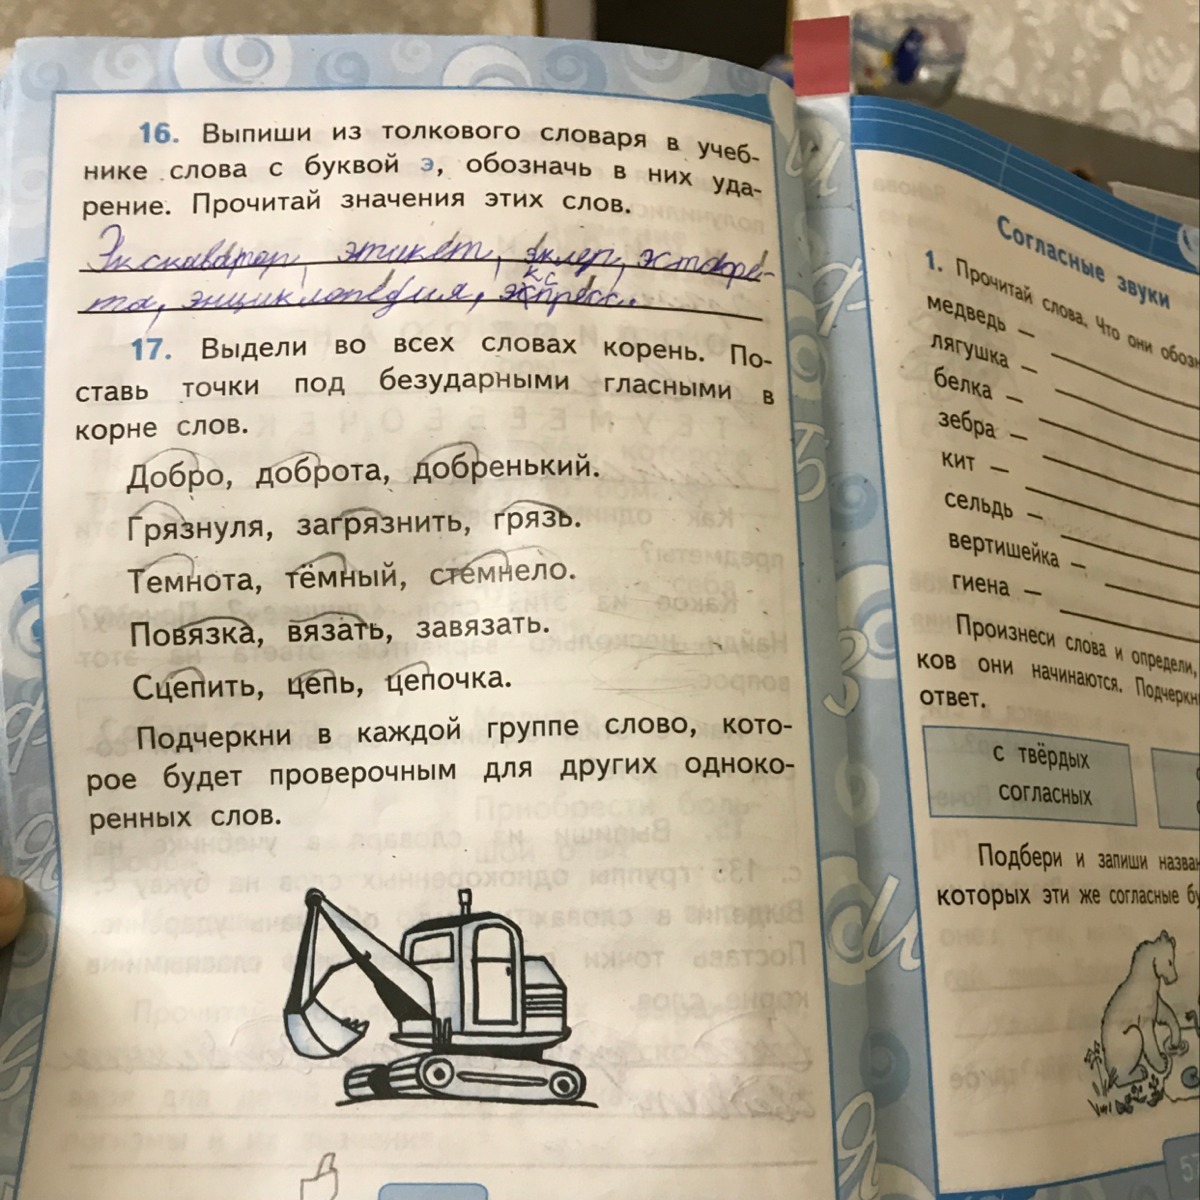 16. Выпиши из толкового словаря в учеб-
нике слова с буквой э, обозначь в них уда-
рение. Прочитай значения этих слов.
Экскаватор, этикет, эклер, эстафе-
та, энциклопедия, экспресс.
17. Выдели во всех словах корень. По-
ставь точки под безударными гласными в
корне слов.
Добро, доброта, добренький.
Грязнуля, загрязнить, грязь.
Темнота, тёмный, стемнело.
Повязка, вязать, завязать.
Сцепить, цепь, цепочка.
Подчеркни в каждой группе слово, кото-
рое будет проверочным для других одноко-
ренных слов.
Согласные звуки
1. Прочитай слова. Что они
медведь –
лягушка –
белка –
зебра –
кит –
сельдь –
вертишейка –
гиена –
Произнеси слова и определи,
ков они начинаются.
ответ.
с твёрдых
согласных
Подбери и запиши
которых эти же согласные